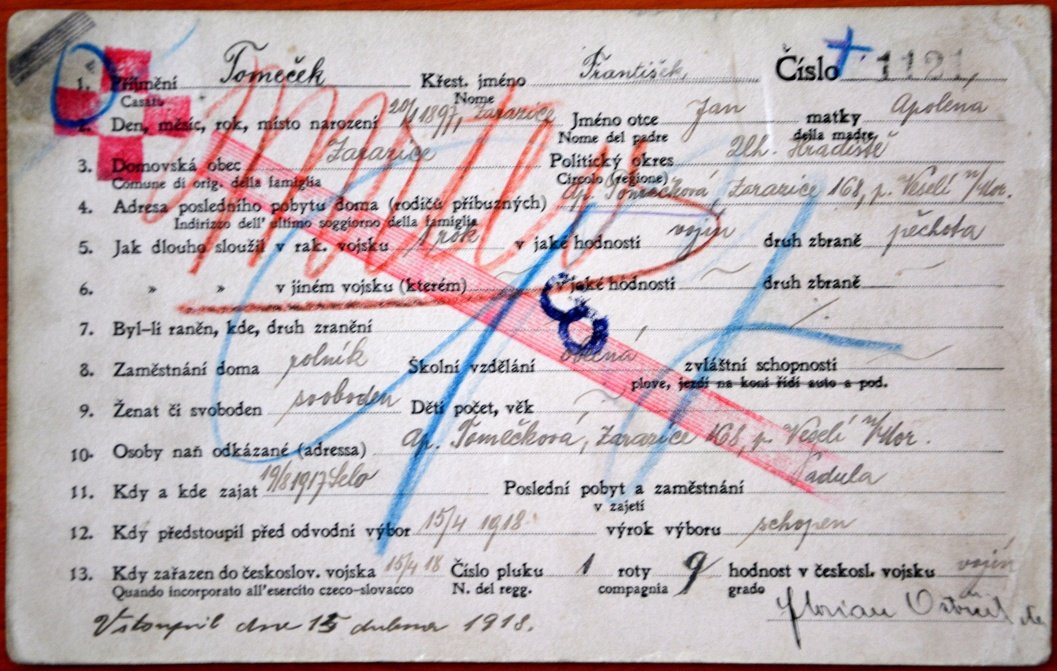 1. Příjmení Tomeček Křest. jméno František Číslo 1121
Casata Nome
2. Den, měsíc, rok, místo narození 20/1 1897, Zarazice Jméno otce Jan matky Apolena
Nome del padre della madre
3. Domovská obec Zarazice Politický okres Uh. Hradiště
Comune di orig. della famiglia Circolo (regione)
4. Adresa posledního pobytu doma (rodičů příbuzných) Ap. Tomečková, Zarazice 168, p. Veselí n/Mor.
Indirizzo dell' ultimo soggiorno della famiglia
5. Jak dlouho sloužil v rak. vojsku 1 rok v jaké hodnosti vojín druh zbraně pěchota
6. » » v jiném vojsku (kterém) v jaké hodnosti druh zbraně
7. Byl-li raněn, kde, druh zranění
8. Zaměstnání doma rolník Školní vzdělání obecná zvláštní schopnosti
plove, jezdí na koni řídí auto a pod.
9. Ženat či svoboden svoboden Děti počet, věk
10. Osoby naň odkázané (adressa) Ap. Tomečková, Zarazice 168, p. Veselí n/Mor.
11. Kdy a kde zajat 19/8 1917 Selo Poslední pobyt a zaměstnání Padula
v zajetí
12. Kdy předstoupil před odvodní výbor 15/4 1918 výrok výboru schopen
13. Kdy zařazen do českoslov. vojska 15/4 18 Číslo pluku 1 roty 9 hodnost v českosl. vojsku vojín
Quando incorporato all'esercito czeco-slovacco N. del regg. compagnia grado
Vstoupil dne 15 dubna 1918. Florian